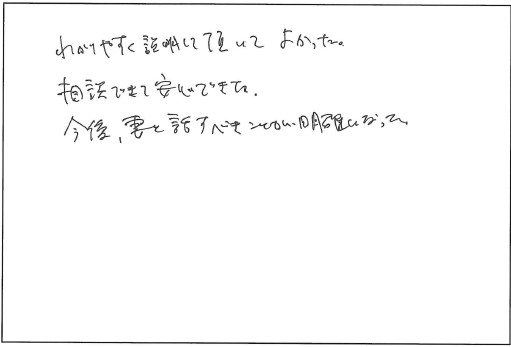 わかりやすく説明して頂いてよかった。
相談できて安心できた。
今後、妻と話すべきことが明確になった